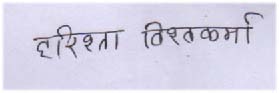 हरिश्ता विश्वकर्मा